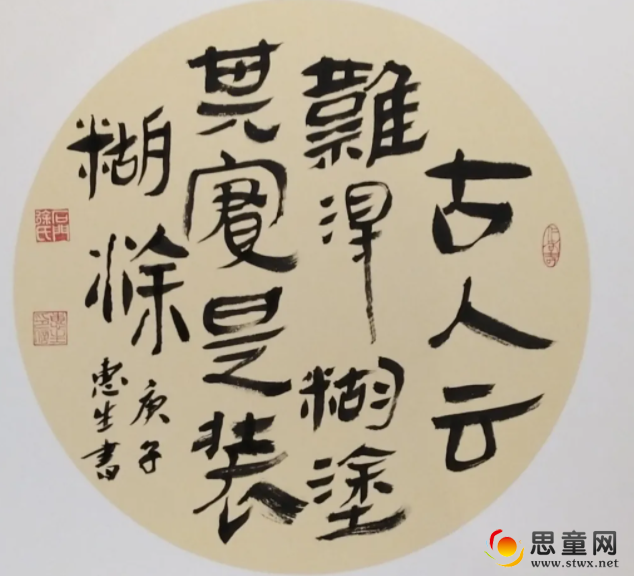 古人云
難得糊塗
其實是装
糊涂
庚子
惠生書
石門徐氏
思童网
www.stwx.net